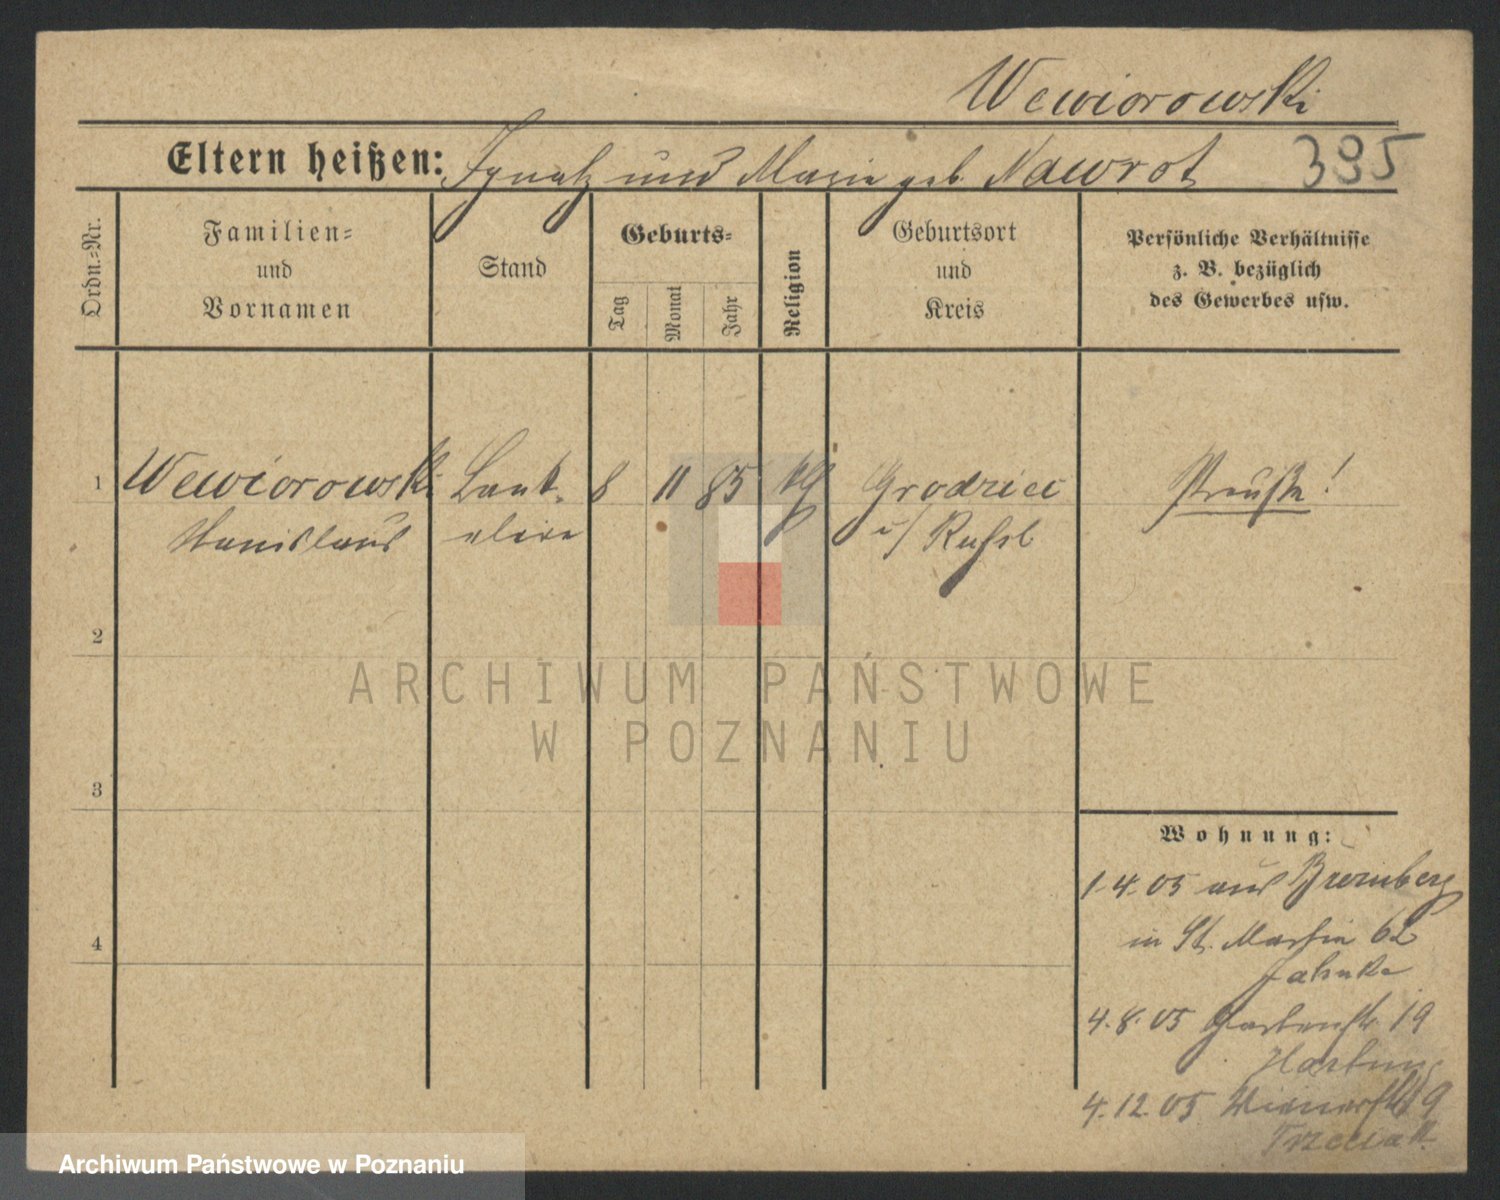 Wewiorowski
Eltern heißen: Ignatz und Marie geb. Nawrot 395
Ordn.-Nr.
Familien-
und
Vornamen
Stand
Geburts-
Tag
Monat
Jahr
Religion
Geburtsort
und
Kreis
Persönliche Verhältnisse
z. B. bezüglich
des Gewerbes usw.
1 Wewiorowski Bank- 8 11 85 kth Grodziec Preuße!
Stanislaus eleve i/ Rußl
2
3
4
Wohnung:
1.4.05 aus Bromberg
in St. Martin 62
Jahnke
4.8.05 Gartenstr. 19
Hartung
4.12.05 Wienerstr 9
Trzeciak
ARCHIWUM PAŃSTWOWE
W POZNANIU
Archiwum Państwowe w Poznaniu